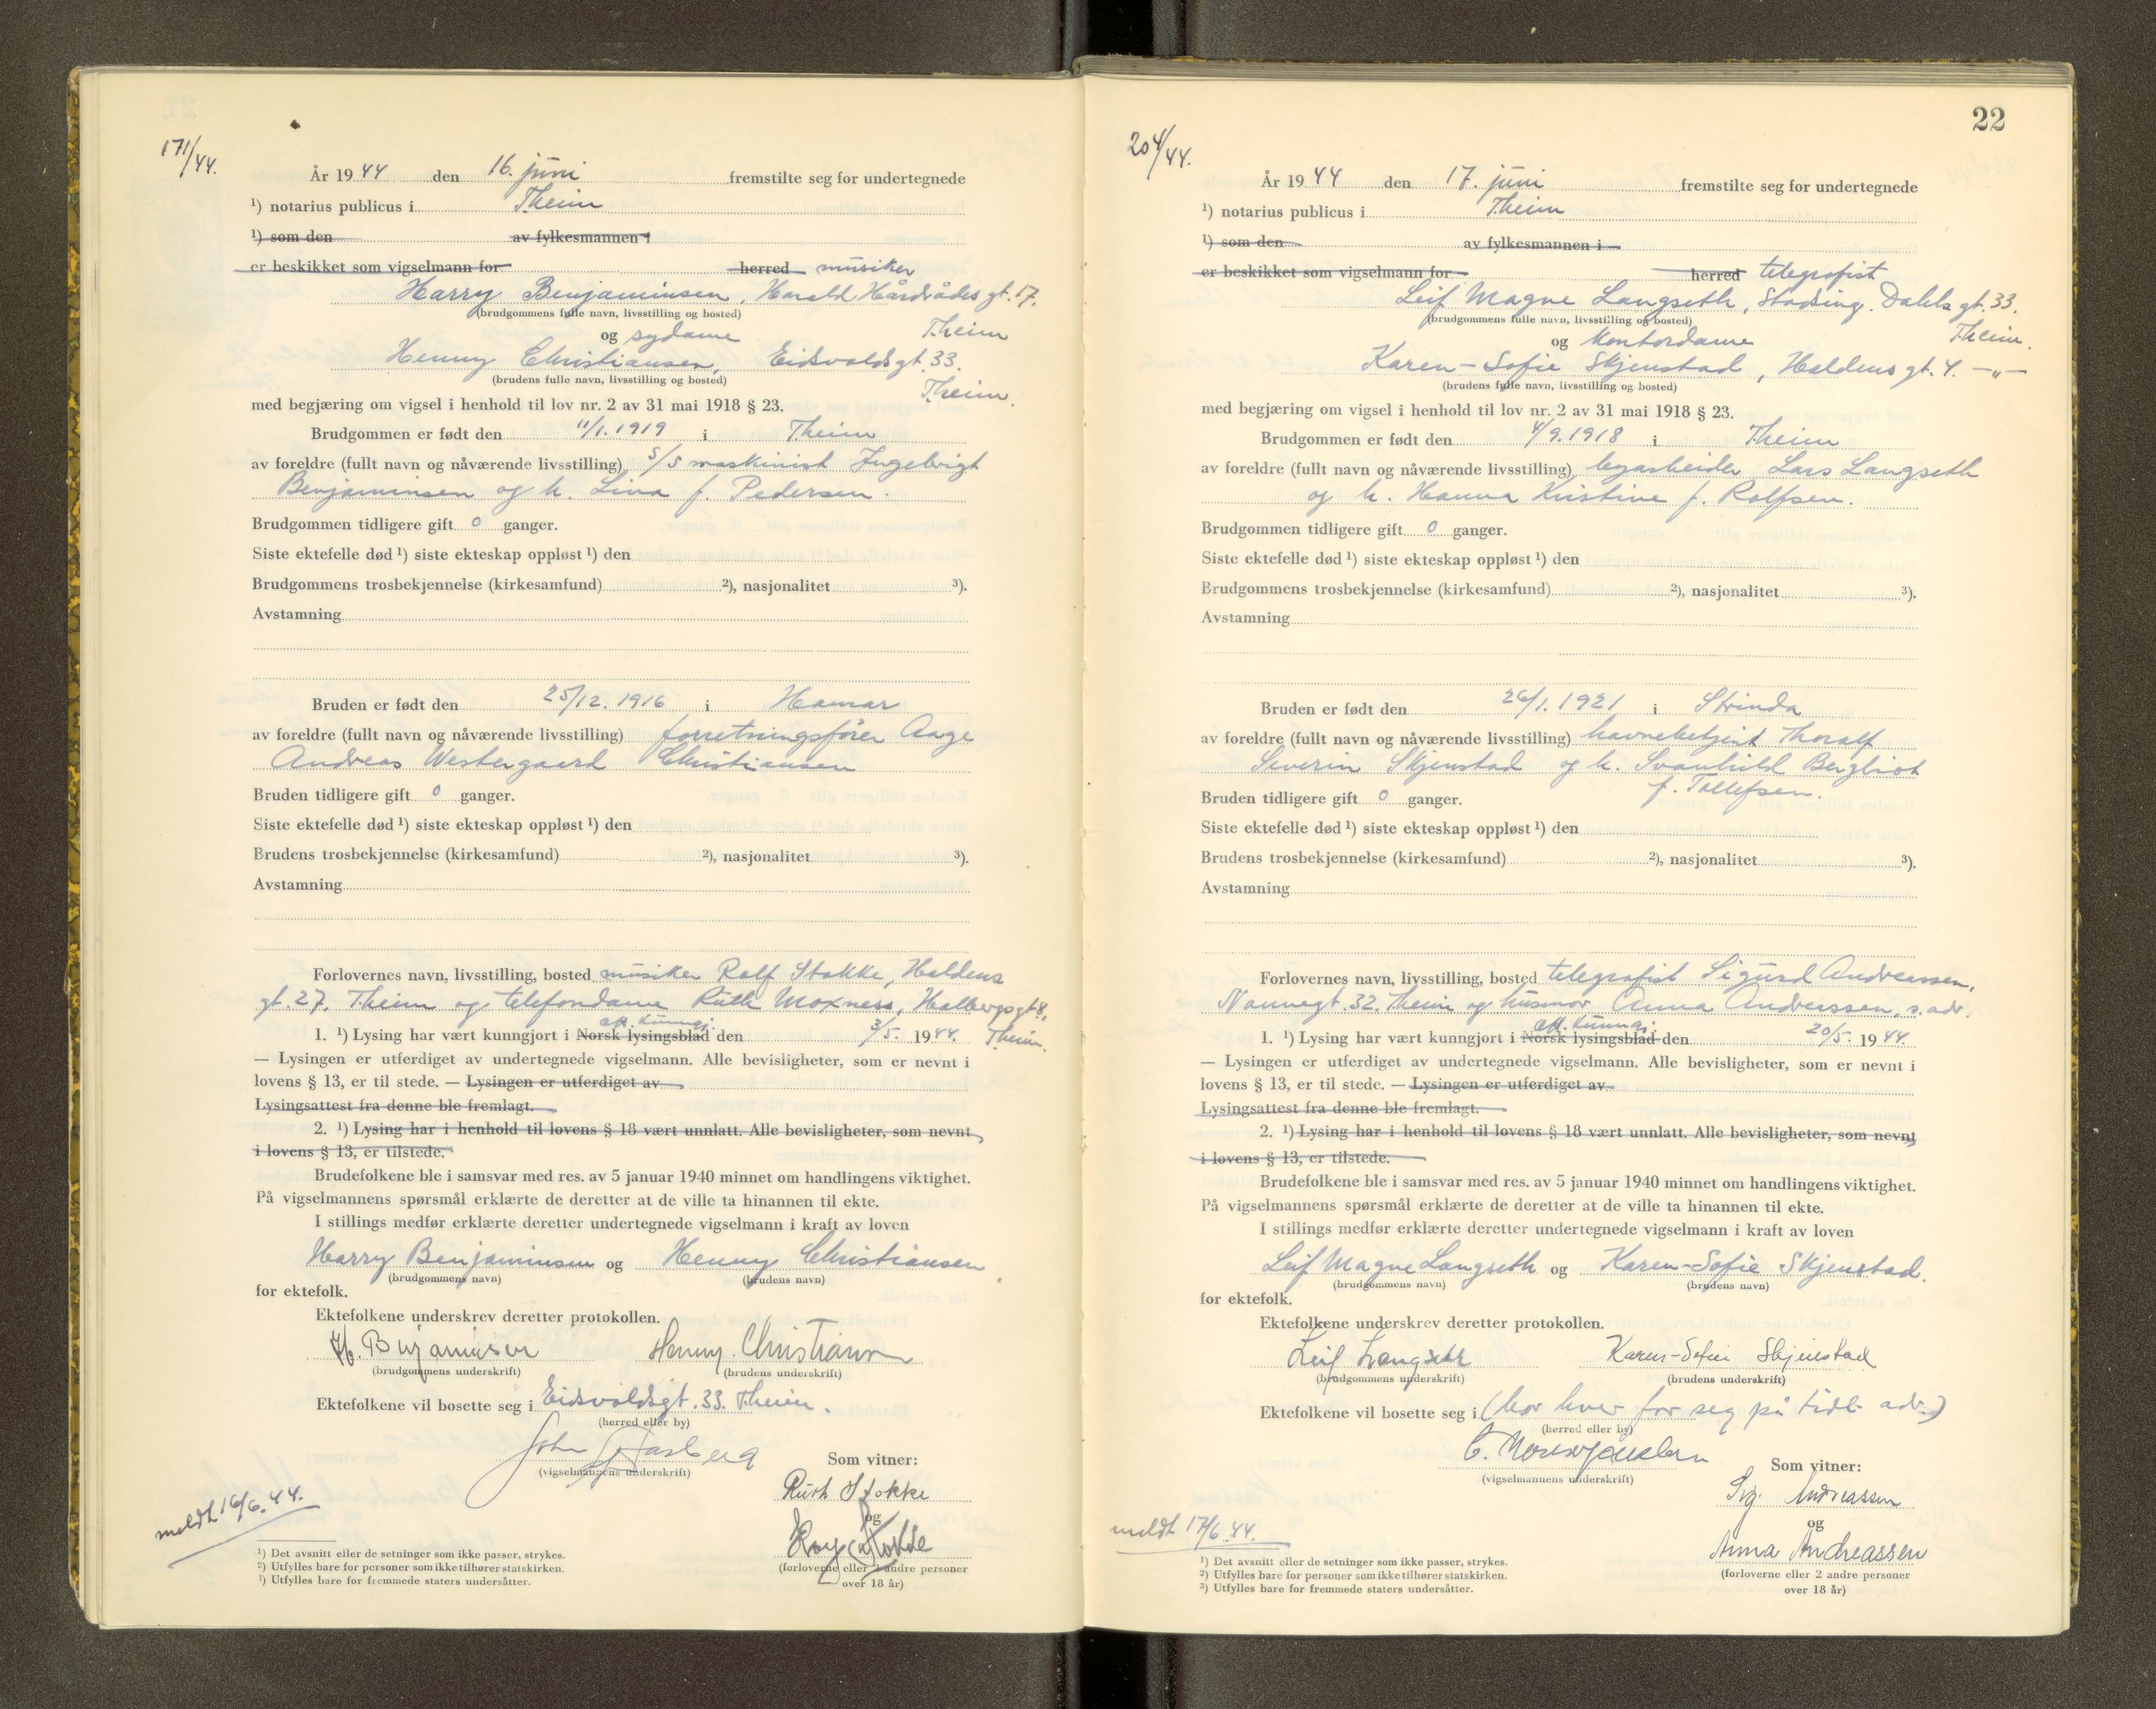 171/44.
År 1944 den 16. juni fremstilte seg for undertegnede
¹) notarius publicus i Theim
¹) som den av fylkesmannen i
er beskikket som vigselmann for herred musiker
Harry Benjaminsen, Harald Hårdrådes gt. 17.
(brudgommens fulle navn, livsstilling og bosted)
og sydame Theim
Henny Christiansen, Eidsvoldsgt. 33.
(brudens fulle navn, livsstilling og bosted)
Theim.
med begjæring om vigsel i henhold til lov nr. 2 av 31 mai 1918 § 23.
Brudgommen er født den 11/1. 1919 i Theim
av foreldre (fullt navn og nåværende livsstilling) s/s maskinist Ingebrigt
Benjaminsen og h. Lina f. Pedersen.
Brudgommen tidligere gift 0 ganger.
Siste ektefelle død ¹) siste ekteskap oppløst ¹) den
Brudgommens trosbekjennelse (kirkesamfund) ²), nasjonalitet ³).
Avstamning
Bruden er født den 25/12. 1916 i Hamar
av foreldre (fullt navn og nåværende livsstilling) forretningsfører Aage
Andreas Westergaard Christiansen
Bruden tidligere gift 0 ganger.
Siste ektefelle død ¹) siste ekteskap oppløst ¹) den
Brudens trosbekjennelse (kirkesamfund) ²), nasjonalitet ³).
Avstamning
Forlovernes navn, livsstilling, bosted musiker Rolf Stokke, Haldens
gt. 27. Theim og telefondame Ruth Moxness, Holbergsgt 8,
Theim.
off. kunngj.
1. ¹) Lysing har vært kunngjort i Norsk lysingsblad den 3/5. 1944.
— Lysingen er utferdiget av undertegnede vigselmann. Alle bevisligheter, som er nevnt i
lovens § 13, er til stede. — Lysingen er utferdiget av
Lysingsattest fra denne ble fremlagt.
2. ¹) Lysing har i henhold til lovens § 18 vært unnlatt. Alle bevisligheter, som nevnt
i lovens § 13, er tilstede.
Brudefolkene ble i samsvar med res. av 5 januar 1940 minnet om handlingens viktighet.
På vigselmannens spørsmål erklærte de deretter at de ville ta hinannen til ekte.
I stillings medfør erklærte deretter undertegnede vigselmann i kraft av loven
Harry Benjaminsen og Henny Christiansen
(brudgommens navn) (brudens navn)
for ektefolk.
Ektefolkene underskrev deretter protokollen.
H. Benjaminsen Henny Christiansen
(brudgommens underskrift) (brudens underskrift)
Ektefolkene vil bosette seg i Eidsvoldsgt. 33. Theim.
(herred eller by)
John Aasberg
(vigselmannens underskrift)
Som vitner:
Ruth Stokke
og
(forloverne eller 2 andre personer
over 18 år)
meldt 16/6. 44.
¹) Det avsnitt eller de setninger som ikke passer, strykes.
²) Utfylles bare for personer som ikke tilhører statskirken.
³) Utfylles bare for fremmede staters undersåtter.
22
204/44.
År 1944 den 17. juni fremstilte seg for undertegnede
¹) notarius publicus i Theim
¹) som den av fylkesmannen i
er beskikket som vigselmann for herred telegrafist
Leif Magne Langseth, Stadsing. Dahls gt. 33.
(brudgommens fulle navn, livsstilling og bosted)
og kontordame Theim.
Karen-Sofie Skjenstad, Haldens gt. 4. —„—
(brudens fulle navn, livsstilling og bosted)
med begjæring om vigsel i henhold til lov nr. 2 av 31 mai 1918 § 23.
Brudgommen er født den 4/9. 1918 i Theim
av foreldre (fullt navn og nåværende livsstilling) byarbeider Lars Langseth
og h. Hanna Kristine f. Rolfsen.
Brudgommen tidligere gift 0 ganger.
Siste ektefelle død ¹) siste ekteskap oppløst ¹) den
Brudgommens trosbekjennelse (kirkesamfund) ²), nasjonalitet ³).
Avstamning
Bruden er født den 26/1. 1921 i Strinda
av foreldre (fullt navn og nåværende livsstilling) havnebetjent Thoralf
Severin Skjenstad og h. Svanhild Bergliot
f. Tollefsen.
Bruden tidligere gift 0 ganger.
Siste ektefelle død ¹) siste ekteskap oppløst ¹) den
Brudens trosbekjennelse (kirkesamfund) ²), nasjonalitet ³).
Avstamning
Forlovernes navn, livsstilling, bosted telegrafist Sigurd Andreassen,
Nannegt. 32. Theim og husmor Anna Andreassen, s. adr.
off. kunngj.
1. ¹) Lysing har vært kunngjort i Norsk lysingsblad den 20/5. 1944.
— Lysingen er utferdiget av undertegnede vigselmann. Alle bevisligheter, som er nevnt i
lovens § 13, er til stede. — Lysingen er utferdiget av
Lysingsattest fra denne ble fremlagt.
2. ¹) Lysing har i henhold til lovens § 18 vært unnlatt. Alle bevisligheter, som nevnt
i lovens § 13, er tilstede.
Brudefolkene ble i samsvar med res. av 5 januar 1940 minnet om handlingens viktighet.
På vigselmannens spørsmål erklærte de deretter at de ville ta hinannen til ekte.
I stillings medfør erklærte deretter undertegnede vigselmann i kraft av loven
Leif Magne Langseth og Karen-Sofie Skjenstad.
(brudgommens navn) (brudens navn)
for ektefolk.
Ektefolkene underskrev deretter protokollen.
Leif Langseth Karen-Sofie Skjenstad
(brudgommens underskrift) (brudens underskrift)
Ektefolkene vil bosette seg i (bor hver for seg på tidl. adr.)
(herred eller by)
(vigselmannens underskrift)
Som vitner:
Sig. Andreassen
og
Anna Andreassen
(forloverne eller 2 andre personer
over 18 år)
meldt 17/6. 44.
¹) Det avsnitt eller de setninger som ikke passer, strykes.
²) Utfylles bare for personer som ikke tilhører statskirken.
³) Utfylles bare for fremmede staters undersåtter.